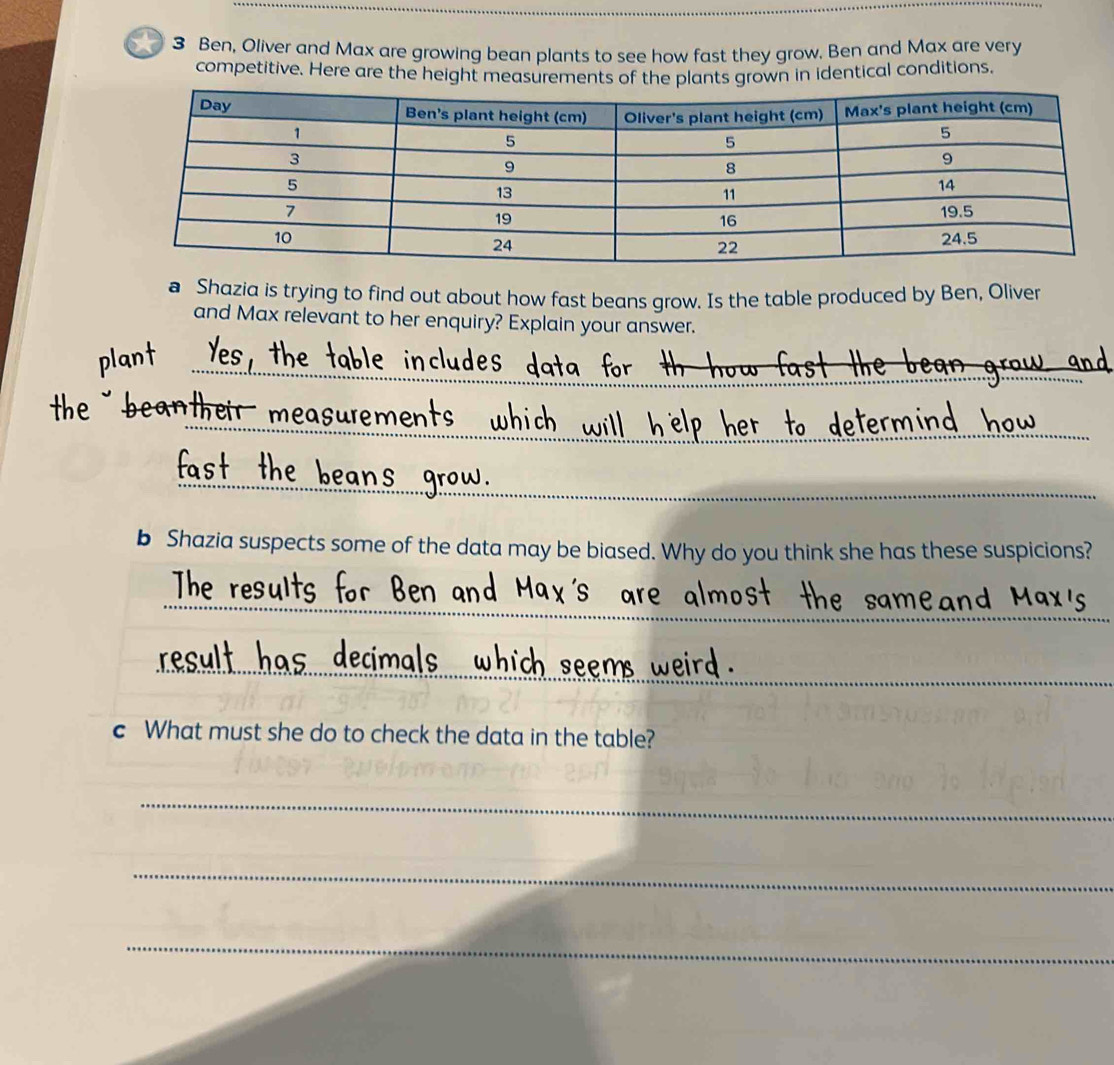 3 Ben, Oliver and Max are growing bean plants to see how fast they grow. Ben and Max are very
competitive. Here are the height measurements of the plants grown in identical conditions.
Day Ben's plant height (cm) Oliver's plant height (cm) Max's plant height (cm)
1 5 5 5
3 9 8 9
5 13 11 14
7 19 16 19.5
10 24 22 24.5
a Shazia is trying to find out about how fast beans grow. Is the table produced by Ben, Oliver
and Max relevant to her enquiry? Explain your answer.
plant Yes, the table includes data for th how fast the bean grow and
the bean their measurements which will help her to determind how
fast the beans grow.
b Shazia suspects some of the data may be biased. Why do you think she has these suspicions?
The results for Ben and Max's are almost the same and Max's
result has decimals which seems weird.
c What must she do to check the data in the table?